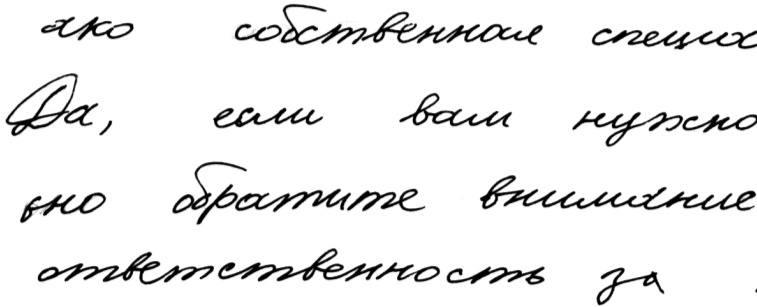 ако собственная специа
Да, если вам нужно
ьно обратите внимание
ответственность за